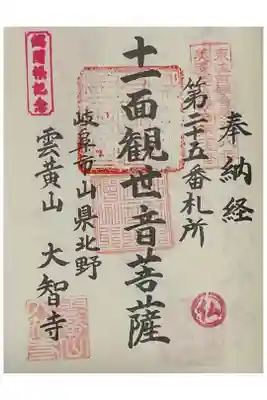 奉納経
第二十五番札所
十一面観世音菩薩
岐阜市山県北野
雲黄山 大智寺
御開帳記念
仏